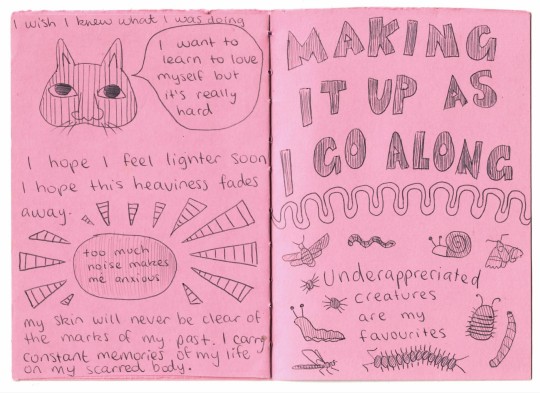 I wish I knew what I was doing
I want to
learn to love
myself but
it's really
hard
I hope I feel lighter soon
I hope this heaviness fades
away.
too much
noise makes
me anxious
my skin will never be clear of
the marks of my past. I carry
constant memories of my life
on my scarred body.
MAKING
IT UP AS
I GO ALONG
Underappreciated
creatures
are my
favourites